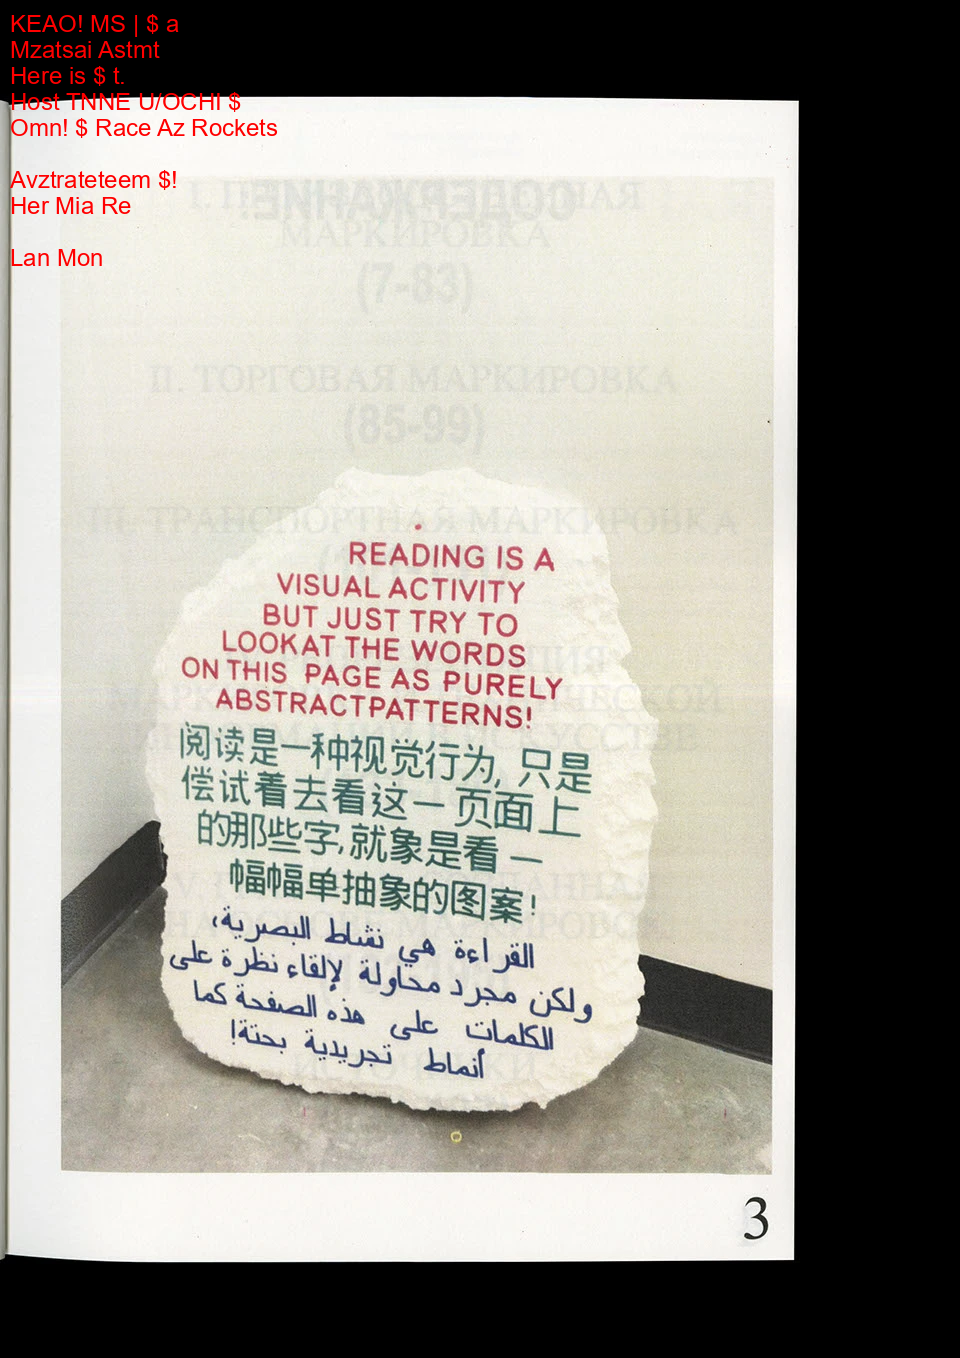 KEAO! MS | $ a
Mzatsai Astmt
Here is $ t.
Host TNNE U/OCHI $
Omn! $ Race Az Rockets
Avztrateteem $!
Her Mia Re
Lan Mon
СОДЕРЖАНИЕ:
МАРКИРОВКА
(7-83)
II. ТОРГОВАЯ МАРКИРОВКА
(85-99)
III. ТРАНСПОРТНАЯ МАРКИРОВКА
READING IS A
VISUAL ACTIVITY
BUT JUST TRY TO
LOOK AT THE WORDS
ON THIS PAGE AS PURELY
ABSTRACT PATTERNS!
阅读是一种视觉行为, 只是
偿试着去看这一页面上
的那些字,就象是看一
幅幅单抽象的图案!
القراءة هي نشاط البصرية،
ولكن مجرد محاولة لإلقاء نظرة على
الكلمات على هذه الصفحة كما
أنماط تجريدية بحتة!
3